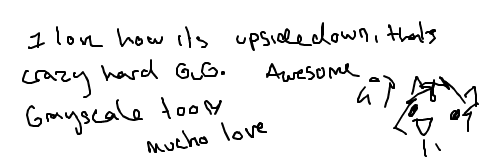 I love how its upsidedown, thats
crazy hard G.G. Awesome
Grayscale tooM
mucho love